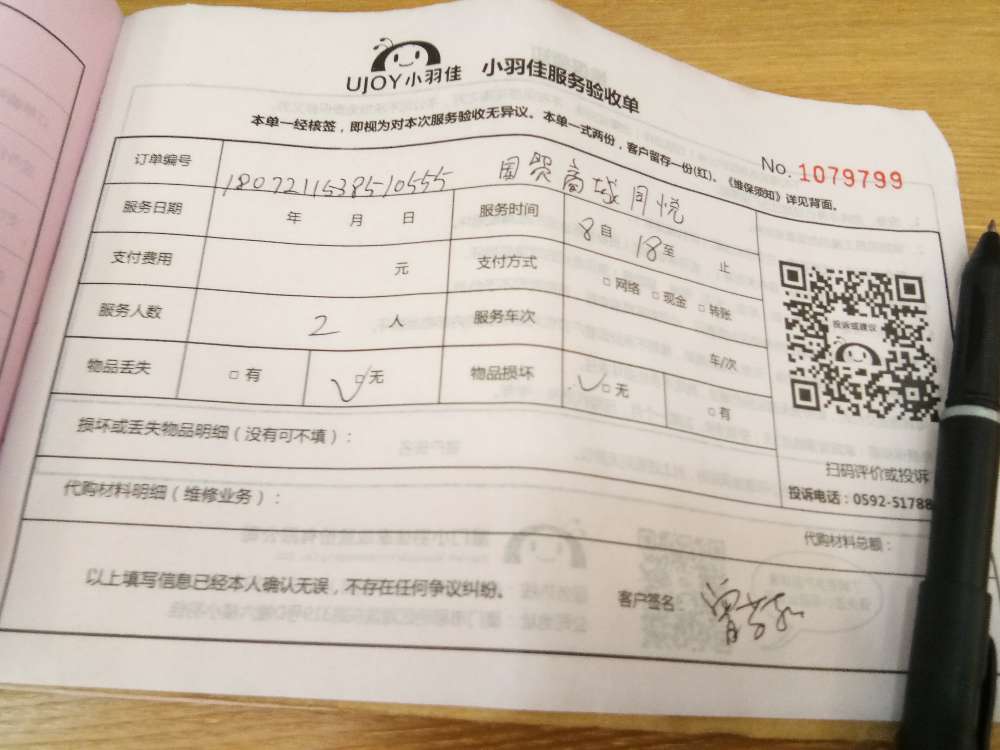 UJOY小羽佳 小羽佳服务验收单
本单一经核签，即视为对本次服务验收无异议。本单一式两份，客户留存一份(红)。《维保须知》详见背面。
No. 1079799
订单编号 1807211538510555 国贸商城同悦
服务日期 年 月 日 服务时间 8自 18至 止
支付费用 元 支付方式 □网络 □现金 □转账
服务人数 2 人 服务车次 车/次
物品丢失 □有 □无 物品损坏 □无 □有
投诉或建议
扫码评价或投诉
投诉电话：0592-51788
损坏或丢失物品明细（没有可不填）：
代购材料明细（维修业务）：
代购材料总额：
以上填写信息已经本人确认无误，不存在任何争议纠纷。 客户签名：